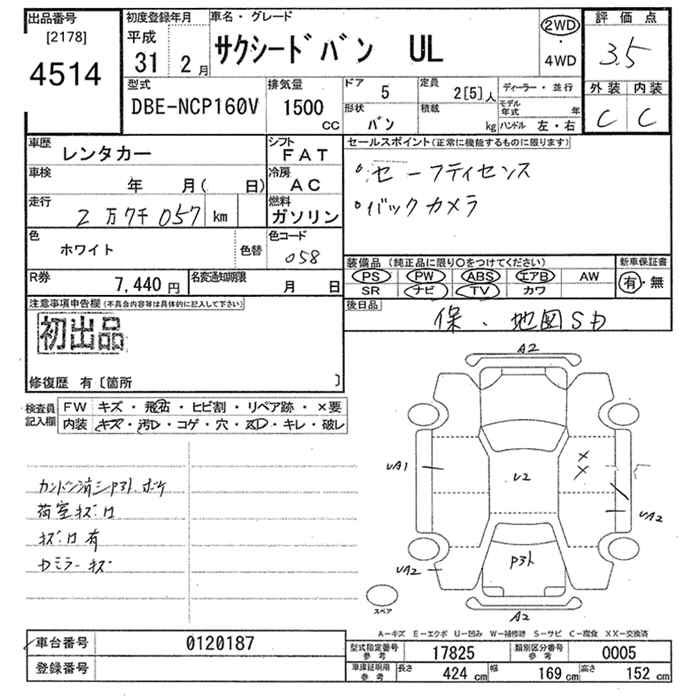 出品番号
[2178]
4514
初度登録年月
平成
31 2月
車名・グレード
サクシードバン UL
2WD
・
4WD
評価点
3.5
型式
DBE-NCP160V
排気量
1500
CC
ドア 5
形状 バン
定員 2[5]人
積載 kg
ディーラー・並行
モデル年式 年
ハンドル 左・右
外装 内装
C C
車歴 レンタカー
シフト
FAT
車検 年 月( 日)
冷房
AC
走行 2万7千057 km
燃料
ガソリン
色 ホワイト 色替
色コード
058
R券 7,440円
名変通知期限 月 日
セールスポイント(正常に機能するものに限ります)
°セーフティセンス
°バックカメラ
装備品 (純正品に限り○をつけてください)
PS PW ABS エアB AW
SR ナビ TV カワ
新車保証書
有・無
後日品
保、地図SD
注意事項申告欄(不具合内容等は具体的に記入して下さい)
初出品
修復歴 有〔箇所 〕
検査員
記入欄
FW キズ・飛石・ヒビ割・リペア跡・×要
内装 キズ・汚れ・コゲ・穴・凹・キレ・破レ
荷室キズ有
キズ有
ミラーキズ
A2
UA1
U2
UA2
UA2
P外
A2
スペア
A−キズ E−エクボ U−凹み W−補修跡 S−サビ C−腐食 XX−交換済
車台番号 0120187
登録番号
型式指定番号
参考
17825
類別区分番号
参考
0005
車庫証明用
参考
長さ 424 cm 幅 169 cm 高さ 152 cm